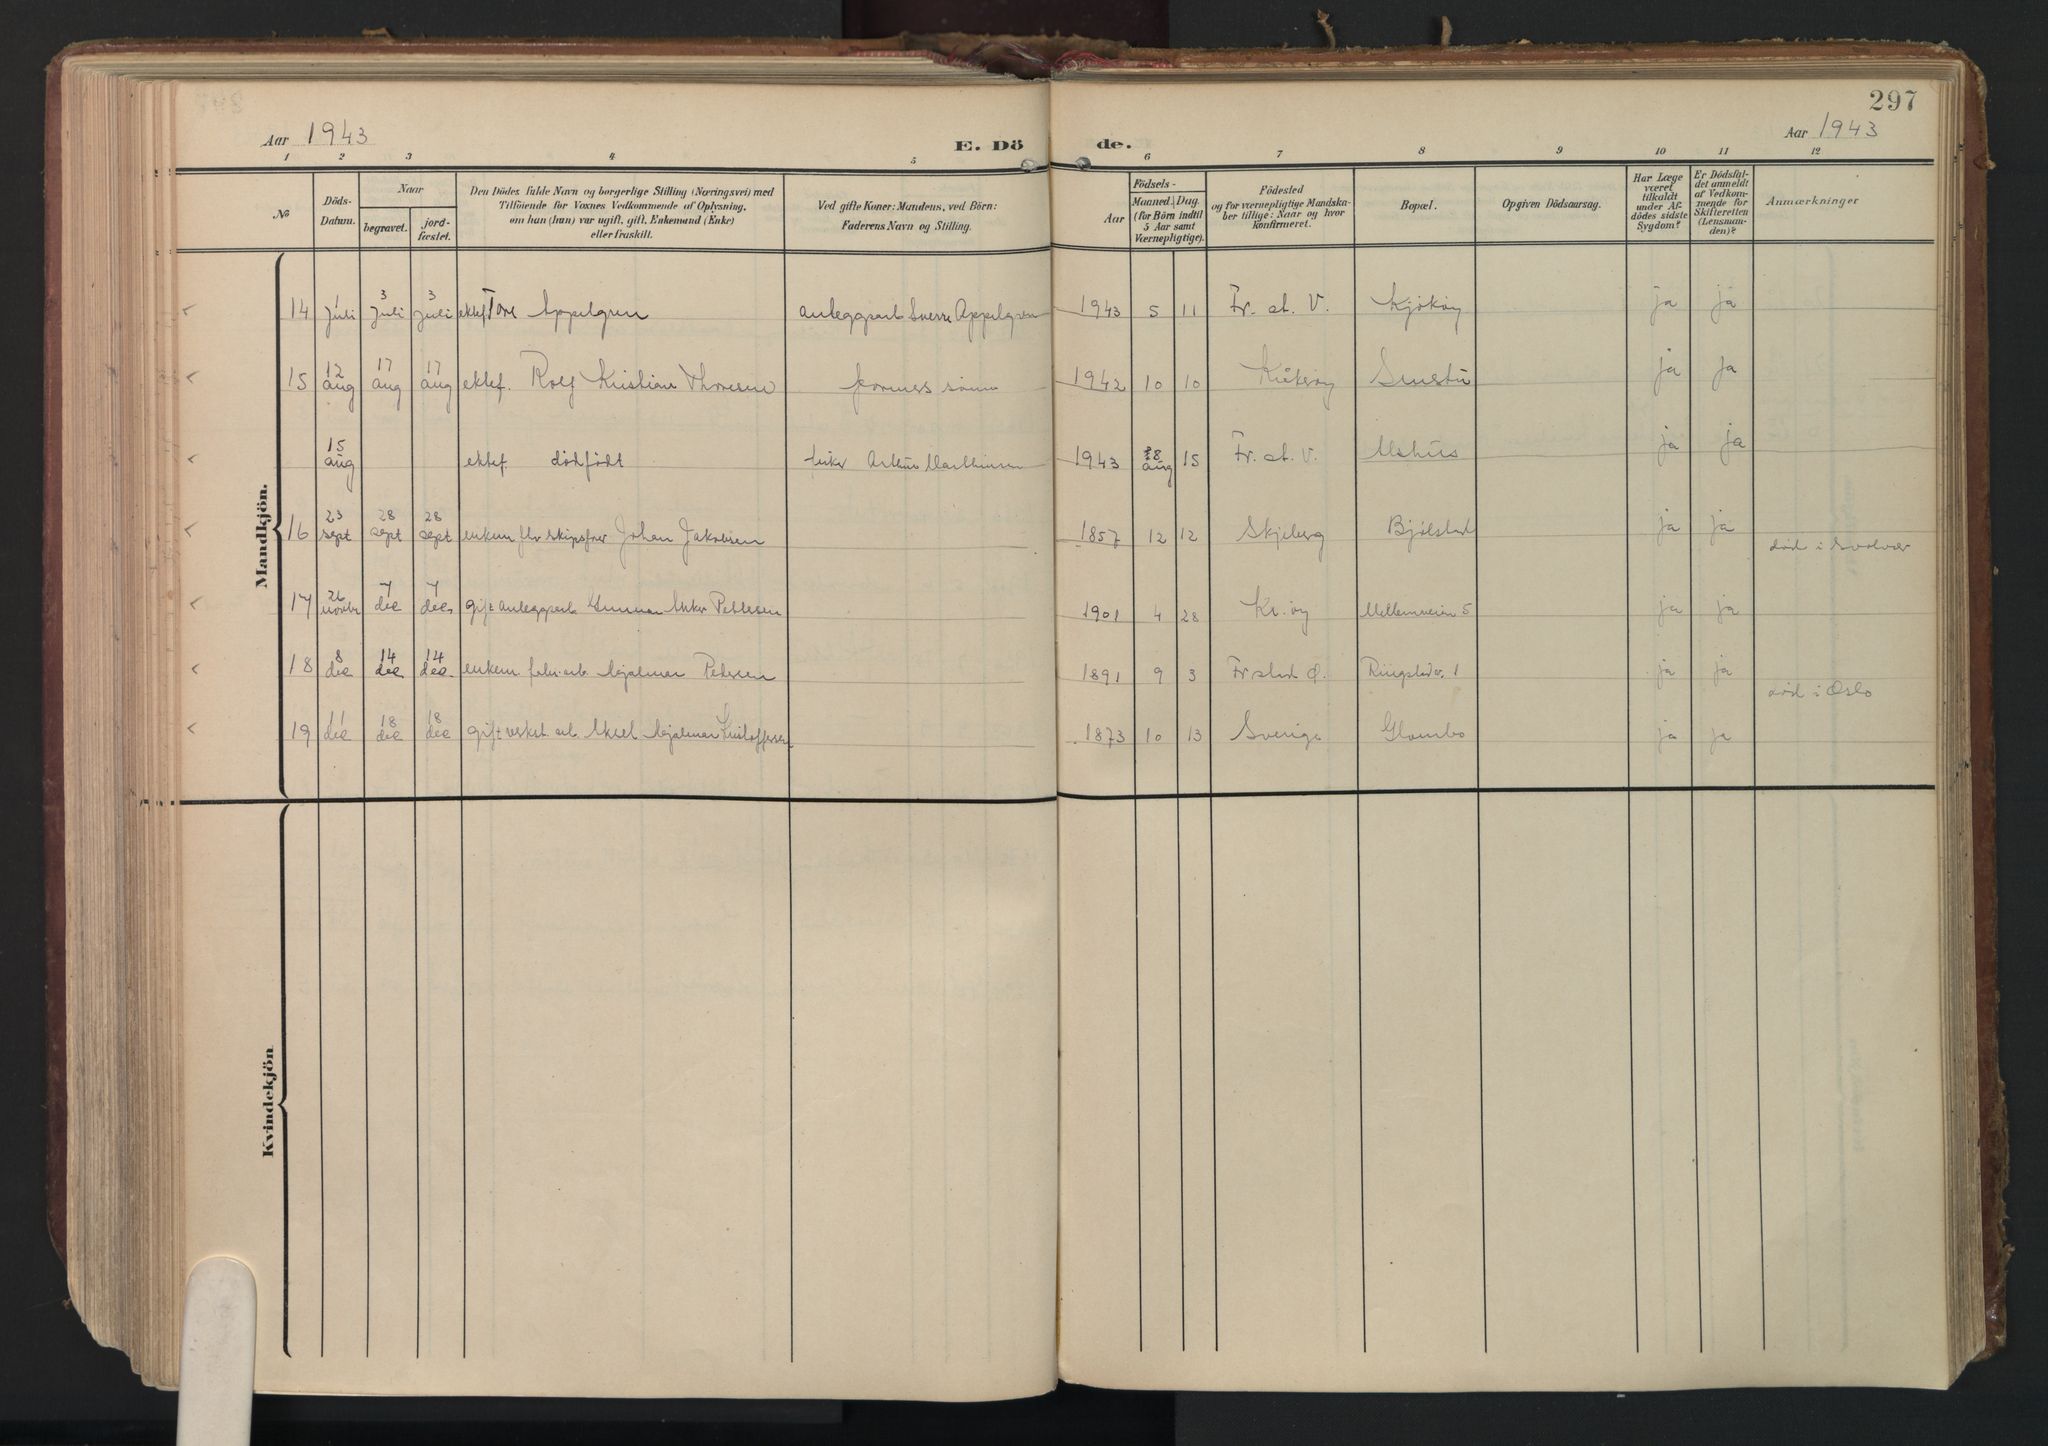 297
Aar 1943
E. Dö
de.
Aar 1943
1 2 3 4 5 6 7 8 9 10 11 12
No
Döds-
Datum.
Naar
begravet.
jord-
fæstet.
Den Dödes fulde Navn og borgerlige Stilling (Næringsvei) med
Tilföiende for Voxnes Vedkommende af Oplysning,
om hun (han) var ugift, gift, Enkemand (Enke)
eller fraskilt.
Ved gifte Koner: Mandens, ved Börn:
Faderens Navn og Stilling.
Födsels-
Aar
Maaned. Dag.
(for Börn indtil
5 Aar samt
Værnepligtige).
Födested
og for værnepligtige Mandska-
ber tillige: Naar og hvor
konfirmeret.
Bopæl.
Opgiven Dödsaarsag.
Har Læge
været
tilkaldt
under Af-
dödes sidste
Sygdom?
Er Dödsfal-
det anmeldt
af Vedkom-
mende for
Skifteretten
(Lensman-
den)?
Anmærkninger
Mandkjön.
14 1 juli 3 juli 3 juli ektef Tore Appelgren anleggsarb Sverre Appelgren 1943 5 11 Fr. st. V. Kjøkøy ja ja
15 12 aug 17 aug 17 aug ektef. Rolf Kristian Thoresen 1942 10 10 Kråkerøy Smertu ja ja
15 aug ektef. dødfødt Arthur Marthinsen 1943 8 aug 15 Fr. st. V. ja ja
16 23 sept 28 sept 28 sept enkem fhv skipsfører Johan Jakobsen 1857 12 12 Skjeberg Bjølstad ja ja død i Svolvær
17 26 novbr 7 dec 7 dec. gift anleggsarb Gunnar Pettersen 1901 4 28 Kr.øy Mellemveien 5 ja ja
18 8 dec 14 dec 14 dec. enkem. fabr. arb. Hjalmar Petersen 1891 9 3 Fr stad Ø. Ringstadv. 1 ja ja død i Oslo
19 11 dec 18 dec 18 dec gift verkst. arb Aksel Hjalmar Kristoffersen 1873 10 13 Sverige Glombo ja ja
Kvindekjön